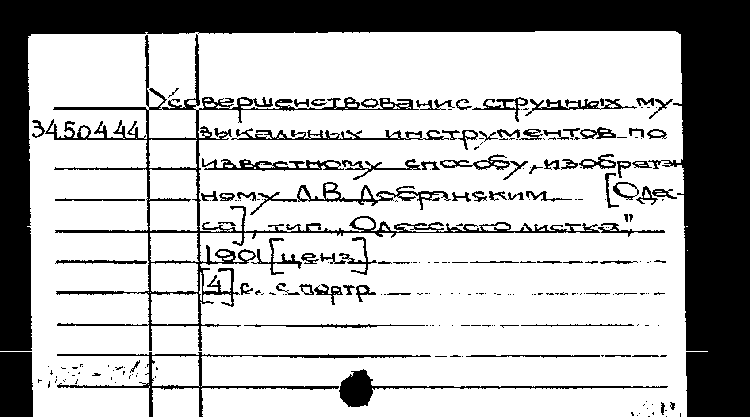 Усовершенствование струнных му-
34.504.44 зыкальных инструментов по
известному способу, изобретен
ному Л.В. Добрянским. [Одес-
са], тип. „Одесского листка",
1901 [ценз.]
[4] с. с портр.